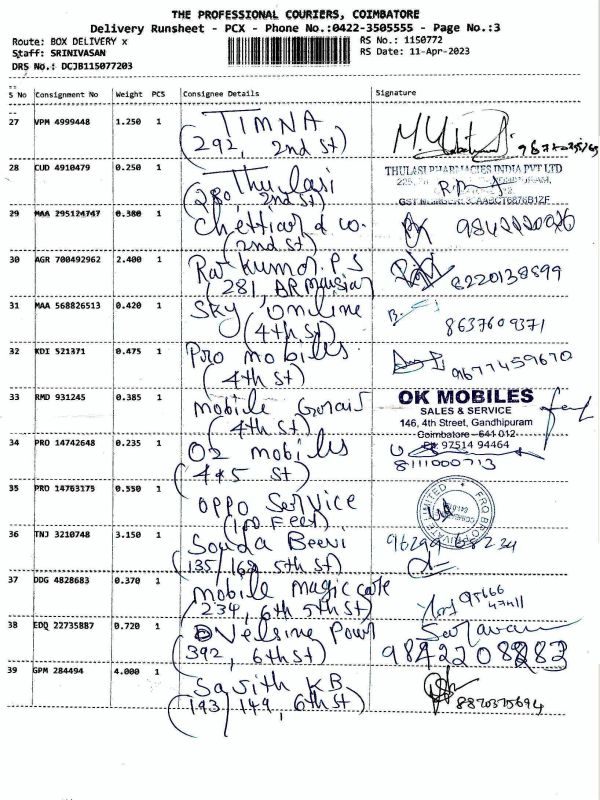 THE PROFESSIONAL COURIERS, COIMBATORE
Delivery Runsheet - PCX - Phone No.:0422-3505555 - Page No.:3
Route: BOX DELIVERY x
RS No.: 1150772
Staff: SRINIVASAN
RS Date: 11-Apr-2023
DRS No.: DCJB115077203
S No Consignment No Weight PCS Consignee Details Signature
27 VPM 4999448 1.250 1 TIMNA
(292, 2nd St)
28 CUD 4910479 0.250 1 Thulasi
THULASI PHARMACIES INDIA PVT LTD
(280, 2nd St)
29 MAA 295124747 0.380 1 Chettiar & co.
(2nd St)
30 AGR 700492962 2.400 1 Raj Kumar. P S
(281, AR mansion
8220138899
31 MAA 568826513 0.420 1 Sky online
(4th St)
8637609371
32 KDI 521371 0.475 1 Pro mobiles
(4th St)
9677459670
33 RMD 931245 0.385 1 mobile
(4th St)
OK MOBILES
SALES & SERVICE
146, 4th Street, Gandhipuram
Coimbatore - 641 012
Ph: 97514 94464
34 PRO 14742648 0.235 1 O2 mobiles
(4&5 St)
8111000713
35 PRO 14763175 0.550 1 OPPO Service
(100 Feet)
36 TNJ 3210748 3.150 1 Souda Beevi
(135/162 5th St)
37 DDG 4828683 0.370 1 mobile magic care
(234, 6th 5th St)
38 EDQ 22735887 0.720 1 Velsine Pour
(392, 6th St)
39 GPM 284494 4.000 1 Sajith K B
(193/149, 6th St)
8870375694